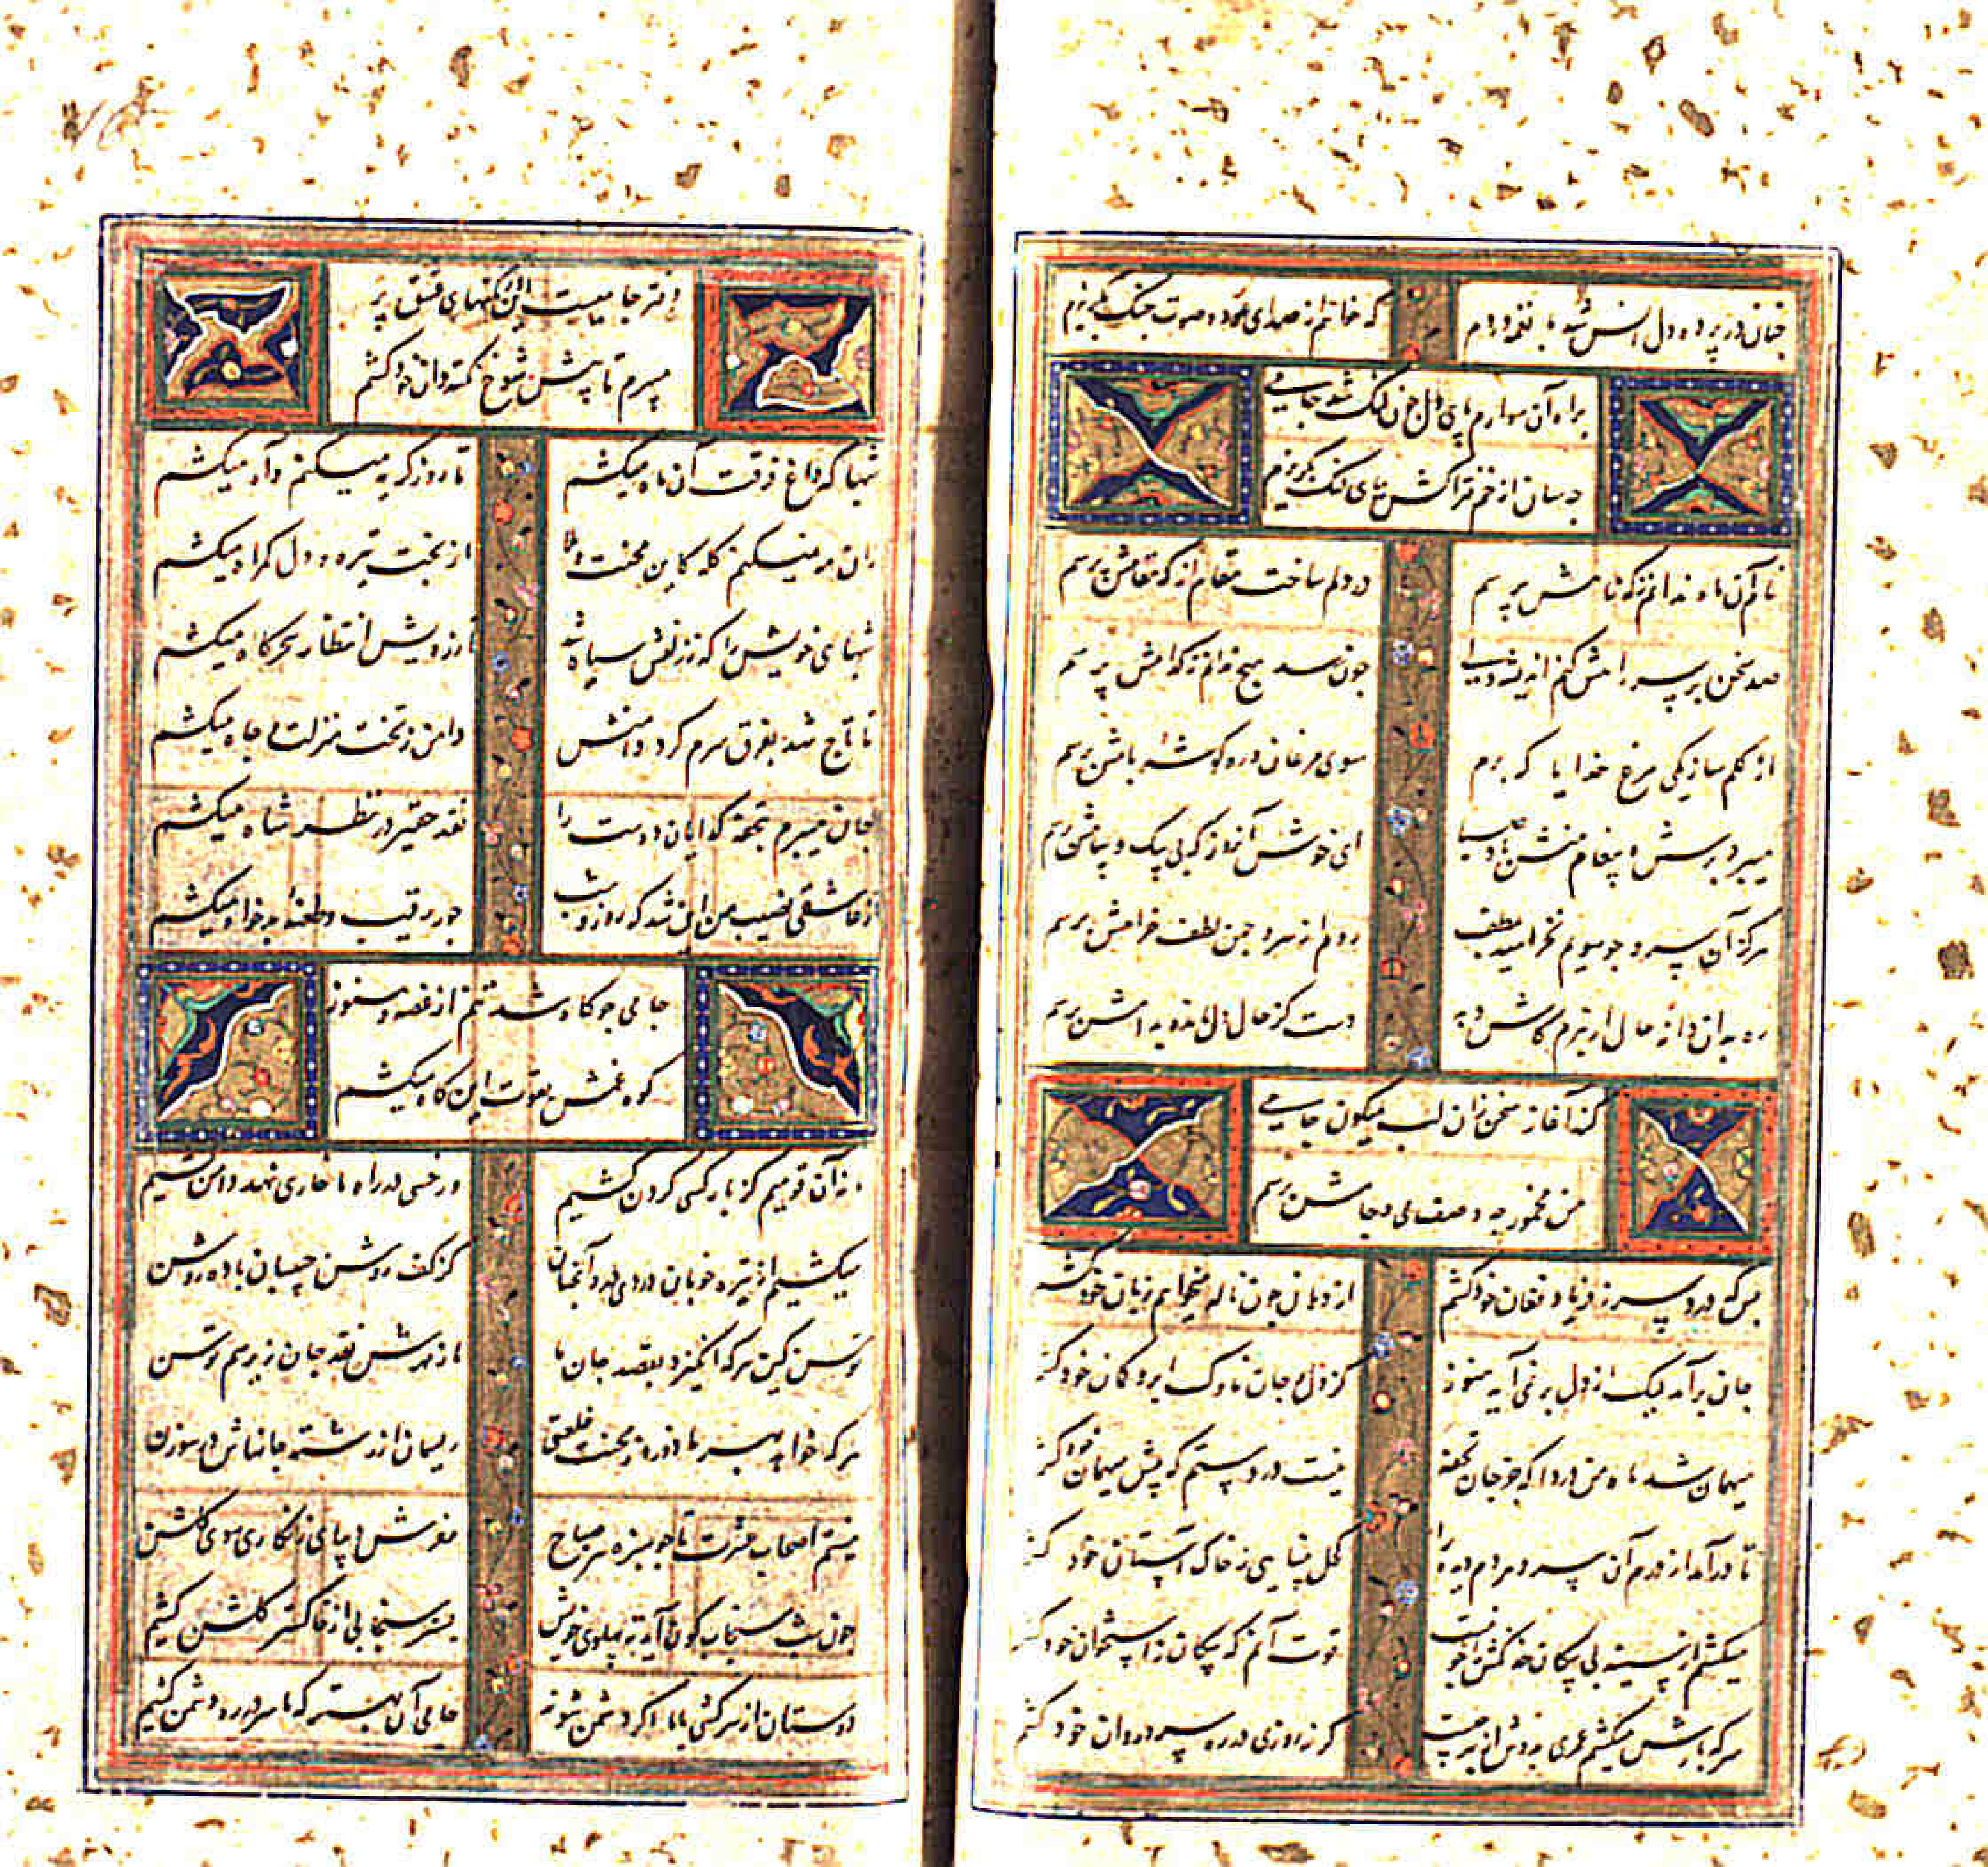 چنان در پرده دل انس شد با نغمه دردم که خانم از صدای عود و صوت چنگ بگریزم
براه آن سوارم پای دل چون لنگ شد جامی
چسان از خم فتراکش بپای لنگ بگریزم
نام آن ماه ندانم ز که نامش پرسم در دلم ساخت مقام از که مقامش پرسم
صد سخن بر سر راهش کنم اندیشه ولی چون رسد هیچ ندانم ز کدامش پرسم
از کلم سازیکی مرغ خدایا که برم سوی مرغان در و گوشه بامش پرسم
میبرد پرسش و پیغام منش باد صبا ای خوش آنروز که بی پیک و پیامش پرسم
هرگز آن سرو چو سویم نخرامید بلطف روم از سرو چمن لطف خرامش پرسم
ره به آن دانه خال ار نبرم کاش دهد دست کز حال دل مانده بدامش پرسم
کند آغاز سخن زان لب میگون جامی
من مخمور چه وصف می و جامش پرسم
بس که درد سر ز فریاد و فغان خود کشم از دهان چون ناله میخواهم زبان خود کشم
جان برآمد لیک از دل بر نمی آید هنوز کز دل و جان ناوک ابرو کمان خود کشم
میهمان شد ماه من دردا که جز جان تحفه نیست در دستم که پیش میهمان خود کشم
تا درآمد از درم آن سرو مردم دیده را کحل بینایی ز خاک آستان خود کشم
میکشم از سینه بی پیکان خدنگش چو نیست قوت آنم که پیکان ز استخوان خود کشم
هر که بارش میکشم عمری بدوش از بهر چیست گر نه روزی در ره سرو روان خود کشم
دفتر جامیست این نکتهای عشق پر
میبرم تا پیش شوخ نکته دان خود کشم
شبها که داغ فرقت آن ماه میکشم تا روز گریه میکنم و آه میکشم
زان مه نمیکنم گله کاین محنت و بلا از بخت تیره و دل گمراه میکشم
شبهای خویش را که ز زلفش سیاه شد از رویش انتظار سحرگاه میکشم
تا تاج شد بفرق سرم گرد دامنش دامن ز تخت منزلت و جاه میکشم
جان میبرم تحفه گدایان دوست را نقد حقیر در نظر شاه میکشم
از عاشقی نصیب من این شد که روز و شب جور رقیب و طعنه بدخواه میکشم
جامی چو کاه شد تنم از غصه و هنوز
کوه غمش بقوت این کاه میکشم
ما نه آن قومیم کز بار کسی گردن کشیم ور خسی در راه ما خاری نهد دامن کشیم
میکشیم از تیره خوبان دردی درد آنچنان کز کف روشن جبینان باده روشن
توسن کین هر که انگیزد بقصد جان ما ما ز مهرش نقد جان زیر سم توسن
هر که خواهد بهر ما دوزد ز محنت خلعتی ریسمان از رشته جانهاش در سوزن
نیستیم اصحاب عشرت تا چو سبزه هر صباح مفرش دیبای زنگاری سوی گلشن
چون شب سنجاب گون آید به پهلوی خویش بستر سنجابی از خاکستر گلخن کشیم
دوستان از سرکشی با ما اگر دشمن شوند جامی آن بهتر که ما سر در ره دشمن کشیم